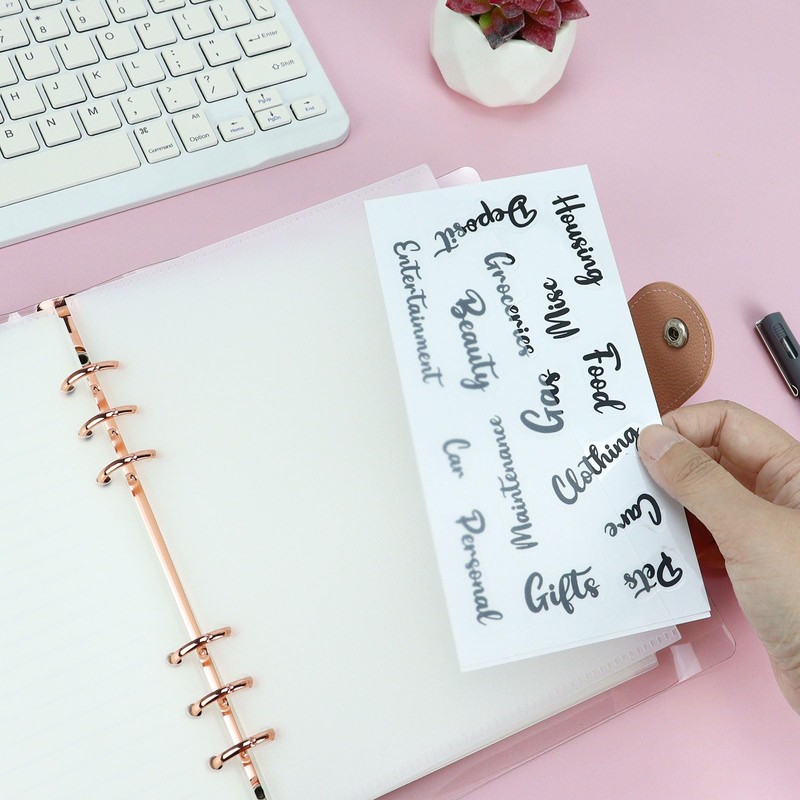 7 8 9 0
U I O P { [ } ] | \
J K L : ; " ' Enter
B N M < , > . ? / Shift
⌘ Command Alt Option Home PgUp PgDn End
Deposit
Housing
Entertainment
Groceries
Misc
Beauty
Food
Gas
Car
Maintenance
Clothing
Personal
Care
Gifts
Pets